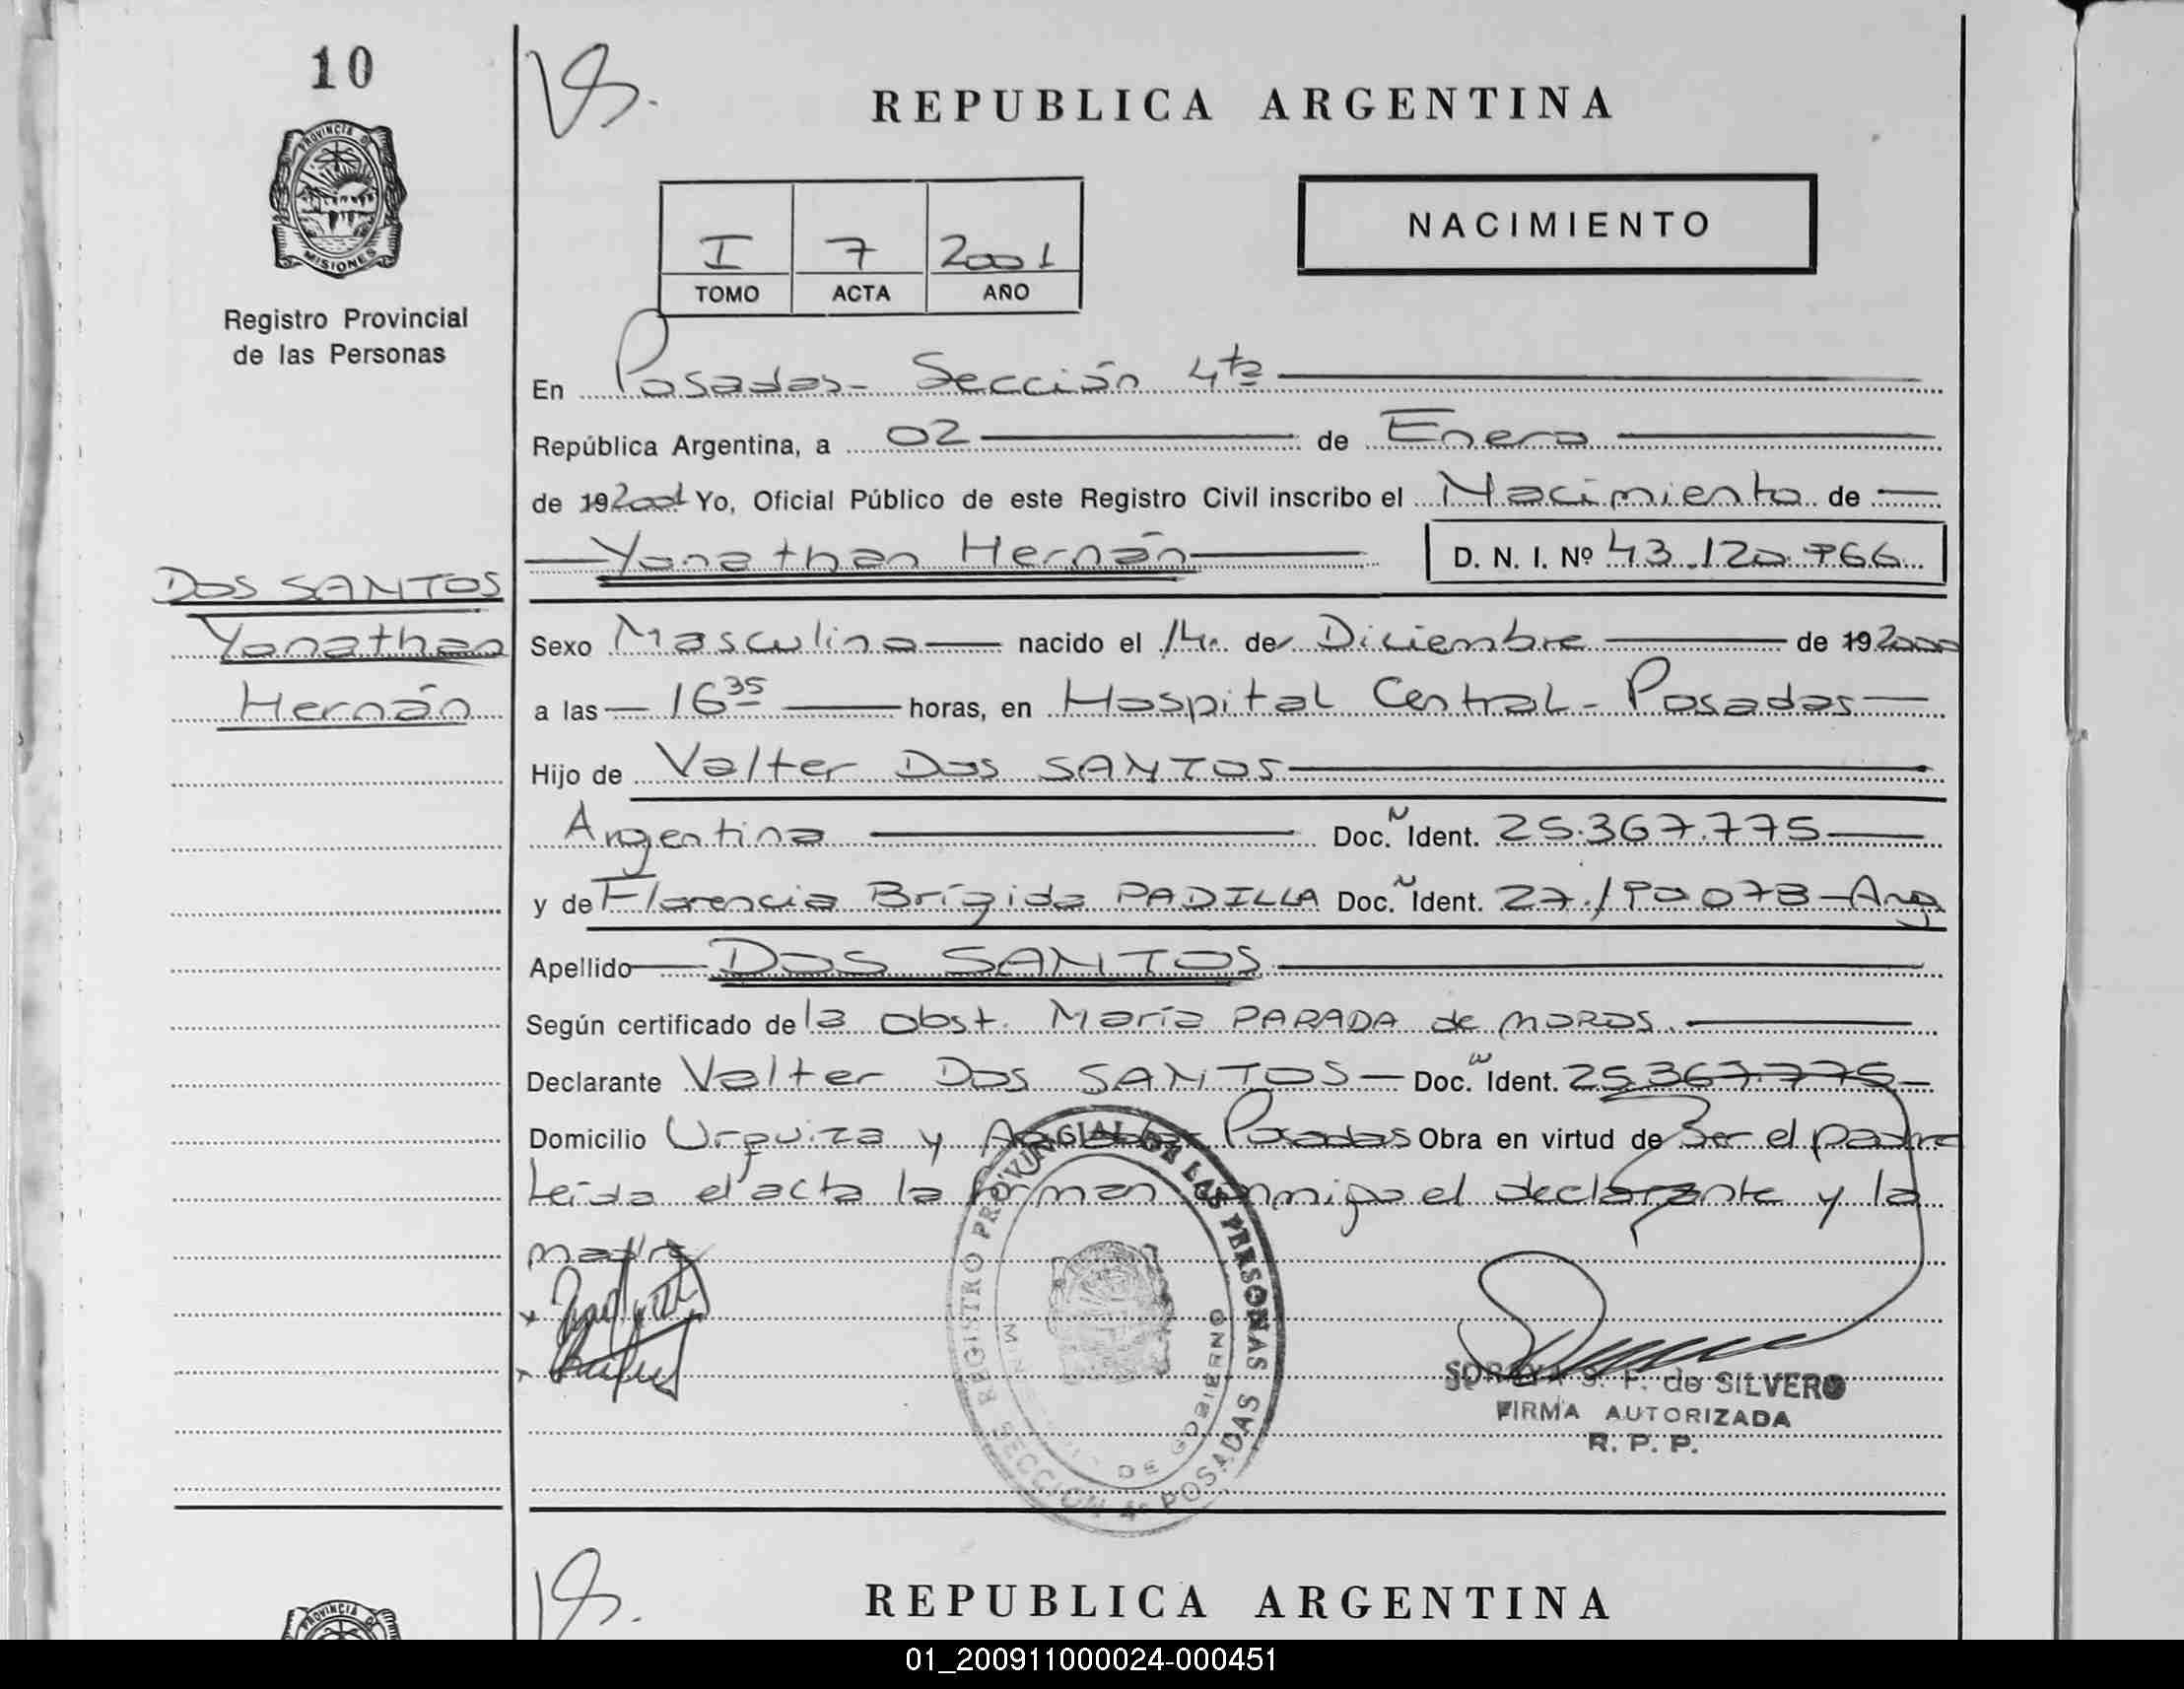 10
REPUBLICA ARGENTINA
PROVINCIA D
MISIONES
Registro Provincial
de las Personas
NACIMIENTO
I 7 2001
TOMO ACTA AÑO
En Posadas- Sección 4ta
República Argentina, a 02 de Enero
de 19 2001 Yo, Oficial Público de este Registro Civil inscribo el Nacimiento de
Yonathan Hernán D. N. I. Nº 43.120.766
DOS SANTOS
Yonathan
Hernán
Sexo Masculino nacido el 14 de Diciembre de 19 2000
a las 16 35 horas, en Hospital Central - Posadas
Hijo de Valter Dos SANTOS
Argentina Doc. N Ident. 25.367.775
y de Florencia Brígida PADILLA Doc. N Ident. 27.190 073-Arg
Apellido DOS SANTOS
Según certificado de la obst. María PARADA de MOROS.
Declarante Valter Dos SANTOS Doc. N Ident. 25.367.775
Domicilio Urquiza y Posadas Obra en virtud de Ser el padre
Leída el acta la firman conmigo el declarante y la
madre
x
x
REGISTRO PROVINCIAL DE LAS PERSONAS
SECCION 4ª POSADAS
DE GOBIERNO
SORAYA S. F. de SILVERO
FIRMA AUTORIZADA
R. P. P.
REPUBLICA ARGENTINA
PROVINCIA D
01_200911000024-000451